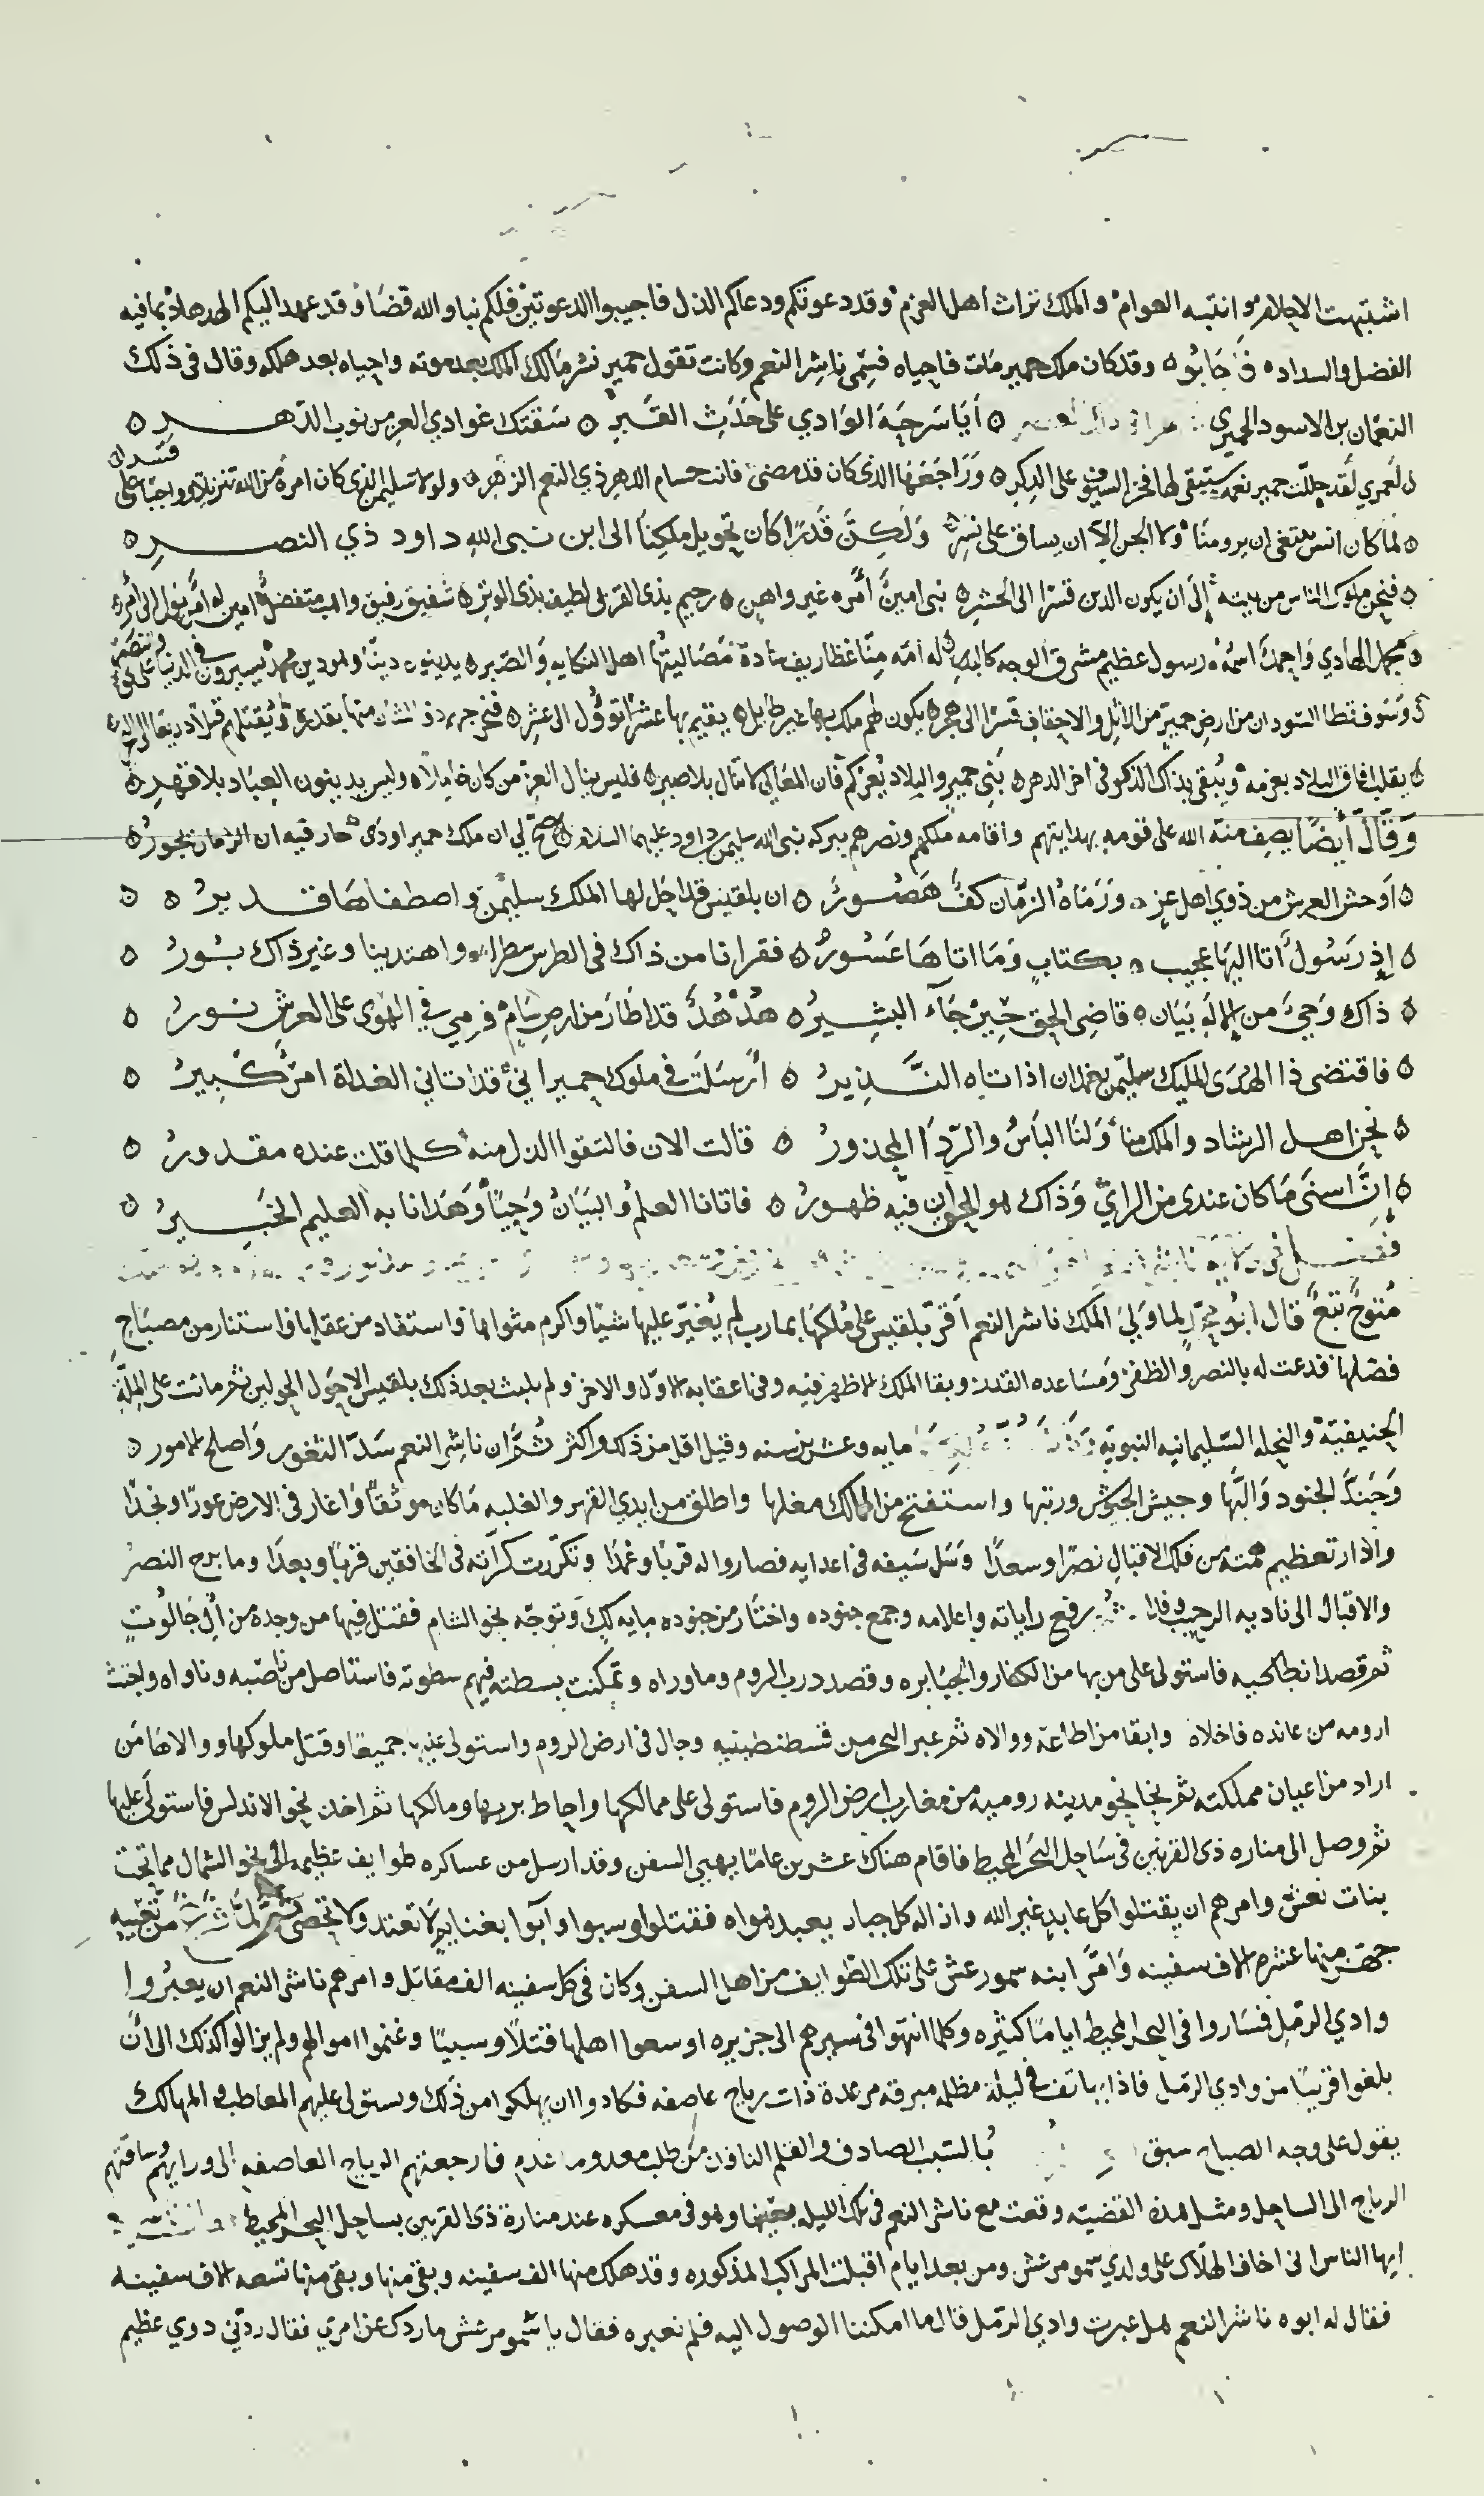 اشتبهت الاحلام وانتبه العوام والملك تراث اهل العزم وقد دعوتكم ودعاكم الذل فاجيبوا الدعوتين فلكم نبا والله قضا وقد عهد اليكم الهدهاد بما فيه
الفضل والسداد وقد كان ملك حمير مات فاحياه فسمى ناشر النعم وكانت تقول حمير نشر مالك الملك بعد موته واحياه بعد هلكه وقال في ذلك
النعمان بن الاسود الحميري أيا سرحة الوادي على حدث القبر سقتك غوادي العز من نوب الدهر
لعمري لقد جللت حمير نعمه ستبقى لها فخر السيوف على الذكر وراجعها الذي كان قد مضى فانت حسام الدهر ذي النعم الزهر ولولا سليمن الذي كان امره من الله تنزيلا وواجبا على قدر
لما كان انس يبتغي ان يرومنا ولا الجن الا ان يساق على نسر ولكن قدرا كان تحويل ملكنا الى ابن نبي الله داود ذي النصر
فنحن ملوك الناس من بيته الى ان يكون الدين قسرا الى الحشر نبي امين امره غير واهن رحيم بذي القربى لطيف بذي الوتر شفيق رفيق متفضل امين له
محمد الهادي واحمد اسمه رسول عظيم مشرق الوجه كالبدر له امه منا غطاريف سادة مصاليتها اهل النكايه والصبر يدينون دينا
وسوف تطا السودان من ارض حمير من الاثل والاحقاف قسرا الى هجر يكون لهم ملك بها غير طايل يقيم بها عشرا توول الى عشر
يقلب افاق البلاد بعزمه ويبقى بذاك الذكر في اخر الدهر بني حمير والبلاد بعزكم فان المعالي لا تنال بلا صبر فليس ينال العز من كان خاملا وليس يدينون العباد بلا قهر
وقال أيضا يصف منة الله على قومه بهدايتهم واقامه ملكهم ونصرهم ببركه نبي الله سليمن بن داود عليهما السلام صح لي ان ملك حمير اودى حار فيه ان الزمان يجور
اوحش العرش من ذوي اهل عز ورماه الزمان كف هصور ان بلقيس قد احل لها الملك سليمن واصطفاها قدير
إذ رسول أتا اليها عجيب بكتاب وما اتاها عسور فقرانا من ذاك في الطرس سطرا واهتدينا وغير ذاك بسور
ذاك وحي من الاله بيان قاضي الحق حين جاء البشير هدهد قد اطار من ارض شام فرمى في الهوى على العرش نور
فاقتضى ذا الهدى المليك سليمن بغمدان اذ اتاه النذير أرسلت في ملوك حمير اني قد اتاني الغداة امر كبير
نحن اهل الرشاد والملك منا ولنا الباس والردا المحذور قالت الان فالتقوا الذل منه كلما قلت عنده مقدور
إن اسنى ما كان عندي من الراي وذاك هو الحق ان فيه ظهور فاتانا العلم والبيان وحيا وهدانا به العليم الخبير
فصل في
متوج تبع قال ابو محمد لما ولي الملك ناشر النعم أقر بلقيس على ملكها بمارب لم يغير عليها شيا واكرم مثواها واستفاد من عقلها واستنار من مصباح
فضلها فدعت له بالنصر والظفر ومساعده القدر وبقا الملك لا ظهر فيه وفي اعقابه الاول والاخر ولم يلبث بعد ذلك بلقيس الا حول الحولين ثم ماتت على الملة
الحنيفية والنحله السليمانيه النبويه مايه وعشرين سنه وقيل اقل من ذلك واكثر ثم ان ناشر النعم سد الثغور واصلح الامور
وجند الجنود والبها وجيش الجيوش ورتبها واستفتح من الممالك مغلها واطلق من ايدي القهر والغلبه ما كان موثقا واغار في الارض غورا ونجدا
وادار تعظيم همته من فلك الاقبال نصرا وسعدا وسل سيفه في اعدايه فصاروا له قربا وغمدا وتكررت كراته في الخافقين قربا وبعدا وما برح النصر
والاقبال الى ناديه الرحيب وفدا ثم رفع راياته واعلامه وجمع جنوده واختار من جنوده مايه لك وتوجه نحو الشام فقتل فيها من وجده من ال جالوت
ثم قصد انطاكيه فاستولى على من بها من الكفار والجبابره وقصد درب الروم وما وراه وتمكنت بسطته فيهم سطوته فاستاصل من ناصبه وناواه واجتث
ارومه من عانده فاخلاه وابقا من اطاعه ووالاه ثم عبر البحر من قسطنطينيه وجال في ارض الروم واستولى عليها جميعا وقتل ملوكها ووالاها من
اراد من اعيان مملكته ثم نحا نحو مدينه روميه من مغارب ارض الروم فاستولى على ممالكها واحاط بربها ومالكها ثم اخذ نحو الاندلس فاستولى عليها
ثم وصل الى مناره ذي القرنين في ساحل البحر المحيط فاقام هناك عشرين عاما يهيي السفن وقد ارسل من عساكره طوايف عظيمه الى نحو الشمال مما تحت
بنات نعش وامرهم ان يقتلوا كل عابد غير الله واذاله كل جبار يعبد هواه فقتلوا وسبوا وآبوا بغنايم لا تعتد ولا تحصى
جهز منها عشره الاف سفينه وامر ابنه سمورعش على تلك الطوايف من اهل السفن وكان في كل سفينه الف مقاتل وامرهم ناشر النعم ان يعبروا
وادي الرمل فساروا في البحر المحيط اياما كثيره وكلما انتهوا في سيرهم الى جزيره اوسعوا اهلها قتلا وسبيا وغنموا اموالهم ولم يزالوا كذلك الى أن
بلغوا قريبا من وادي الرمل فاذا بهاتف في ليلة مظلمه مبرقه مرعدة ذات رياح عاصفه فكادوا ان يهلكوا من ذلك ويستولى عليهم المعاطب والمهالك
يقول على وجه الصباح سبق بالسبب الصادق والقلم النافذ من طلب معدوما عدم فارجعتهم الرياح العاصفه الى ورايهم وساقتهم
الرياح الى الساحل ومثل هذه القضيه وقعت مع ناشر النعم في تلك الليله بعينها وهو في معسكره عند منارة ذي القرنين بساحل البحر المحيط
ايها الناس اني اخاف الهلاك على ولدي سمومرعش ومن بعد ايام اقبلت المراكب المذكوره وقد هلك منها الف سفينه وبقي منها وبقي منها تسعه الاف سفينه
فقال له ابوه ناشر النعم هل عبرت وادي الرمل قال ما امكننا الوصول اليه فلم نعبره فقال يا سمومرعش ما ردك عن امري فقال ردني دوي عظيم